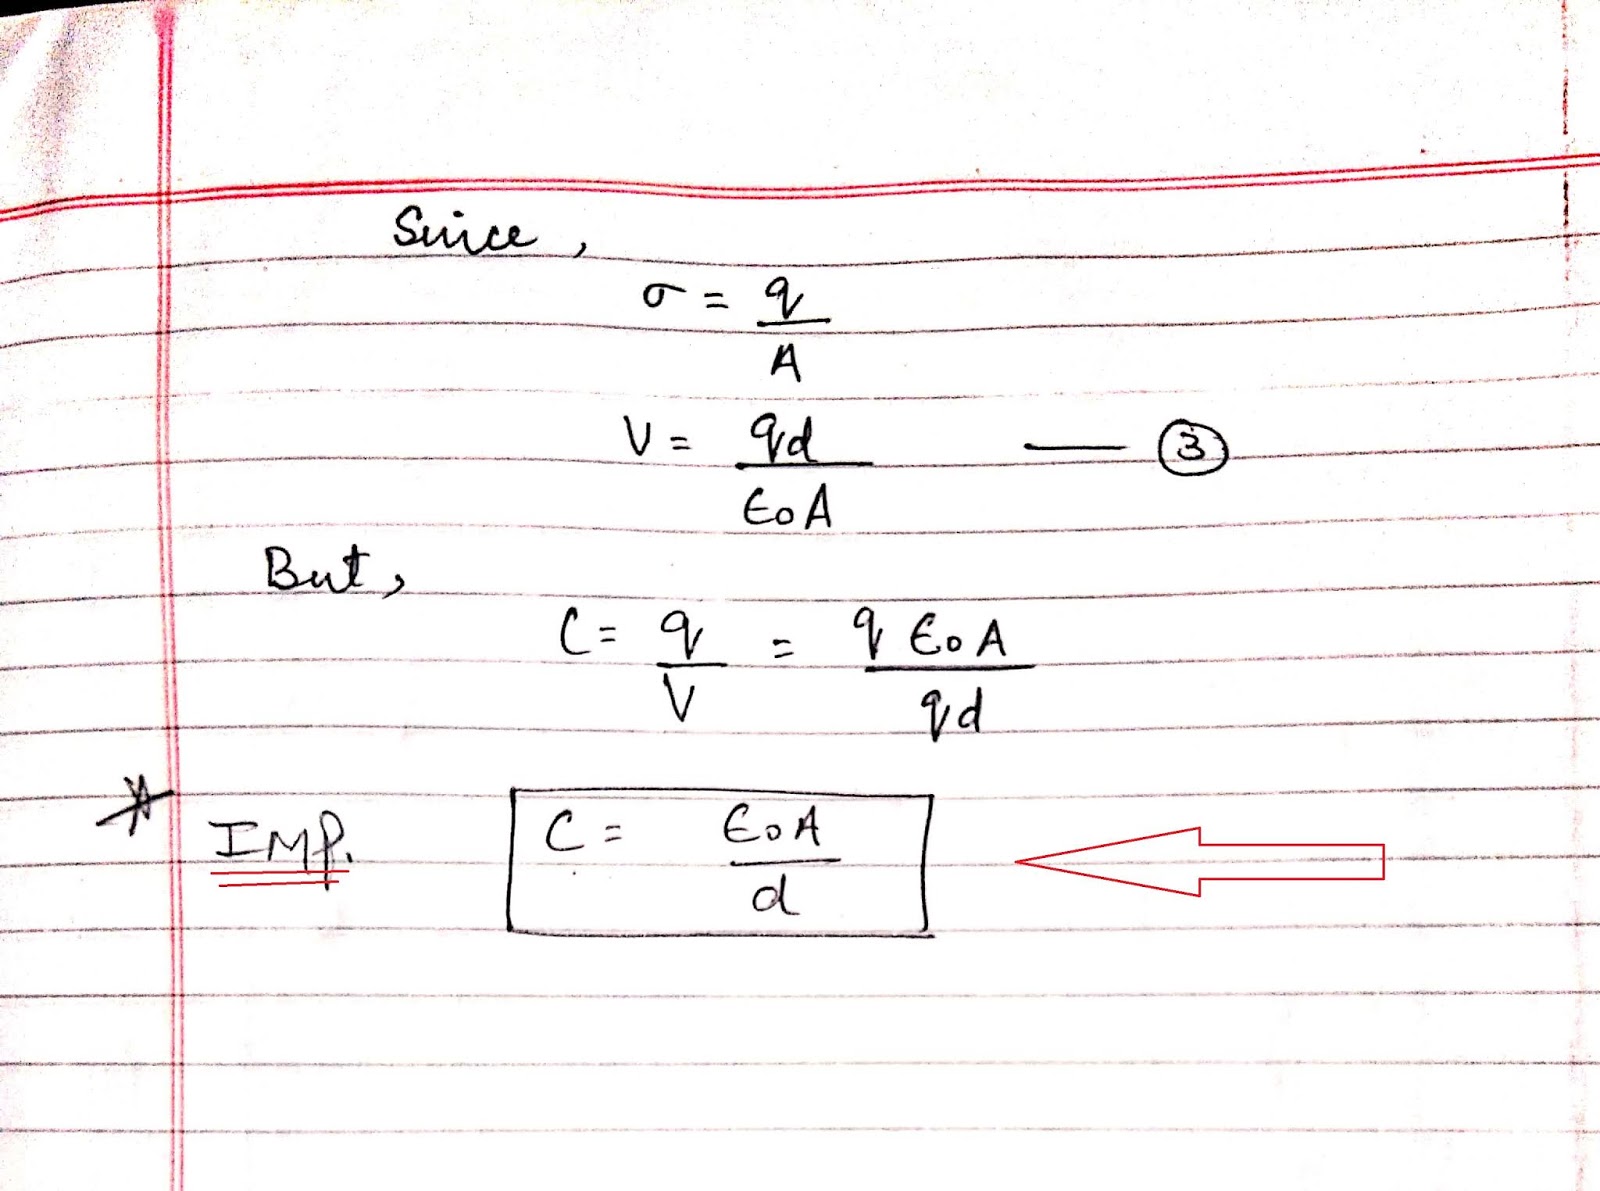 Since,
σ = q/A
V = qd/ϵ₀A —— ③
But,
C = q/V = qϵ₀A/qd
* IMP. C = ϵ₀A/d